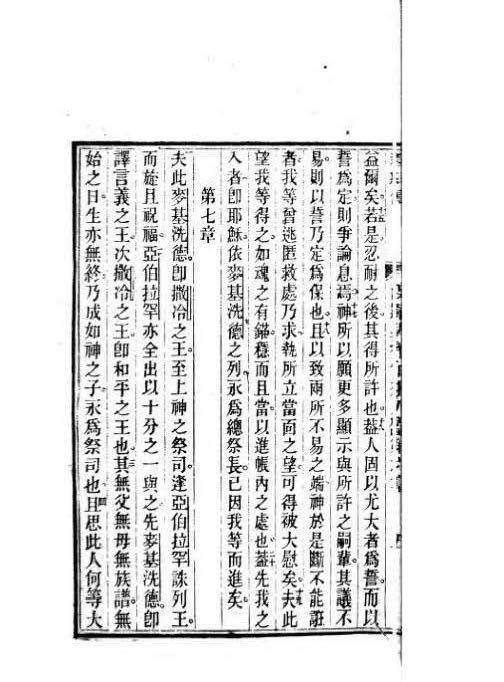 益爾矣若是忍耐之後其得所許也蓋人固以尤大者爲誓而以
誓爲定則爭論息焉神所以願更多顯示與所許之嗣輩其議不
易則以誓乃定爲保也且以致兩所不易之端神於是斷不能誑
者我等曾逃匿救處乃求執所立當面之望可得被大慰矣夫此
望我等得之如魂之有錨穩而且當以進帳內之處也蓋先我之
入者卽耶穌依麥基洗德之列永爲總祭長已因我等而進矣
第七章
夫此麥基洗德卽撒冷之王至上神之祭司逢亞伯拉罕誅列王
而旋且祝福亞伯拉罕亦全出以十分之一與之先麥基洗德卽
譯言義之王次撒冷之王卽和平之王也其無父無母無族譜無
始之日生亦無終乃成如神之子永爲祭司也且思此人何等大